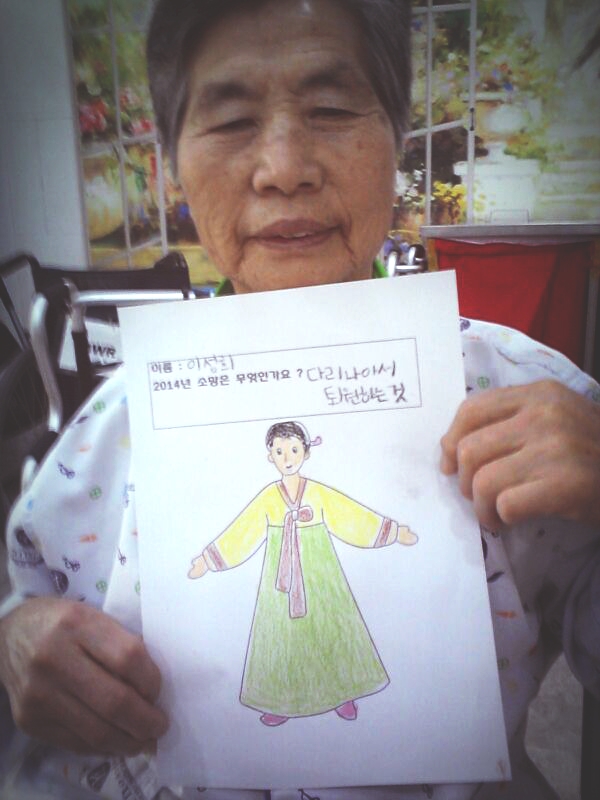 이름 : 이정희
2014년 소망은 무엇인가요 ? 다리나아서
퇴원하는 것